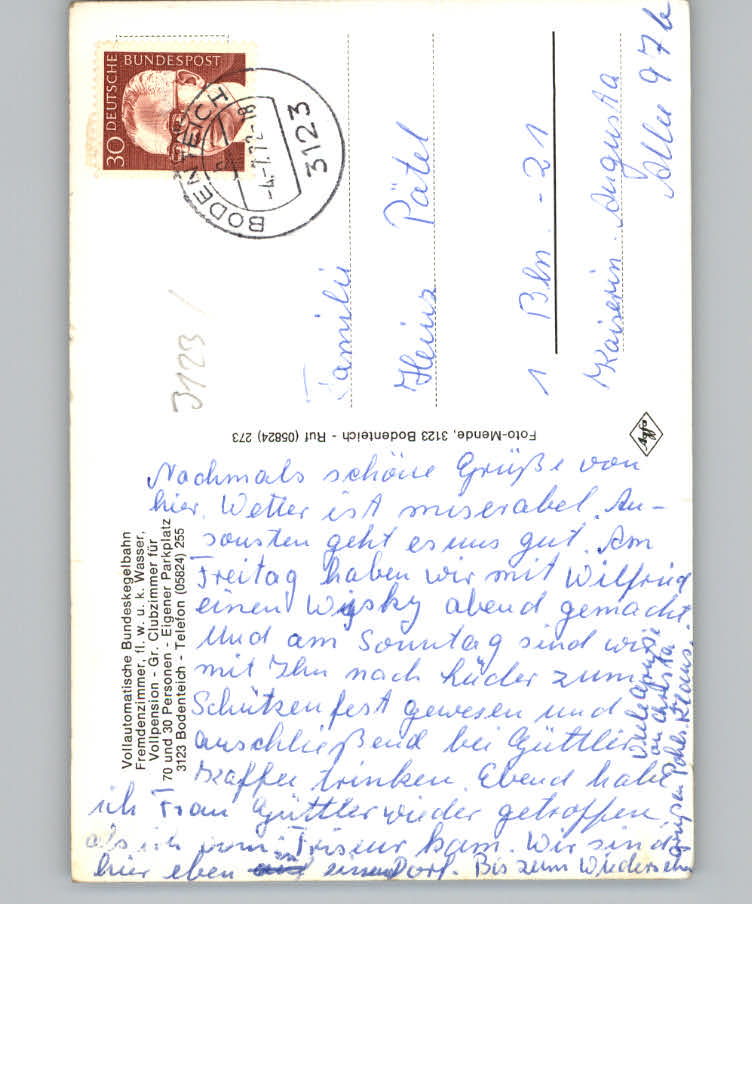 30 DEUTSCHE BUNDESPOST
BODENTEICH
-4.-7.72-18
3123
3123 /
Familie
Heinz Pätel
1 Bln. - 21
Kaiserin-Augusta
Allee 97b
Foto-Mende, 3123 Bodenteich - Ruf (05824) 273
agfa
Vollautomatische Bundeskegelbahn
Fremdenzimmer, fl. w. u. k. Wasser,
Vollpension - Gr. Clubzimmer für
70 und 30 Personen - Eigener Parkplatz
3123 Bodenteich - Telefon (05824) 255
Nochmals schöne Grüße von
hier. Wetter ist miserabel. An-
sonsten geht es uns gut. Am
Freitag haben wir mit Wilfried
einen Wisky abend gemacht.
Und am Sonntag sind wir
mit Ihm nach Lüder zum
Schützenfest gewesen und
anschließend bei Güttler
Kaffee trinken. Ebend habe
ich Frau Güttler wieder getroffen,
als ich vom Friseur kam. Wir sind
hier eben in einem Dorf. Bis zum Wiedersehn
grüßen Klaus.
Viele Grüße
an Christa